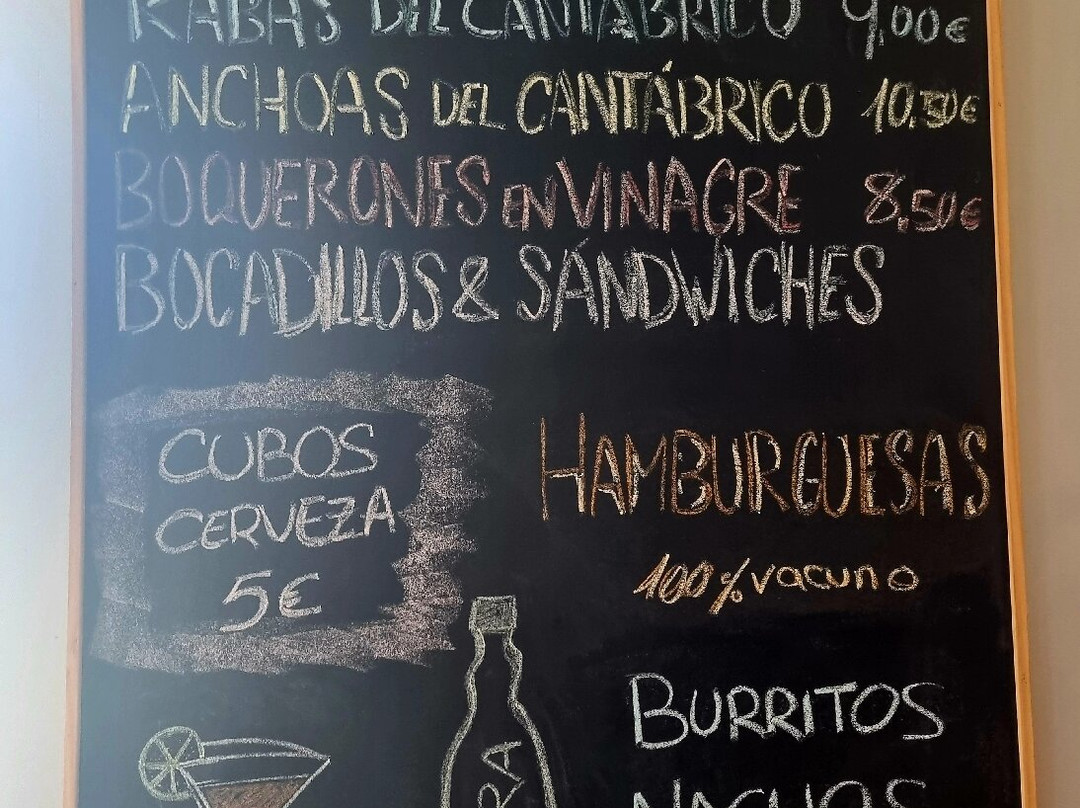 RABAS DEL CANTÁBRICO 9,00€
ANCHOAS DEL CANTÁBRICO 10,50€
BOQUERONES EN VINAGRE 8,50€
BOCADILLOS & SÁNDWICHES
CUBOS
CERVEZA
5€
HAMBURGUESAS
100% vacuno
BURRITOS
NACHOS
RA